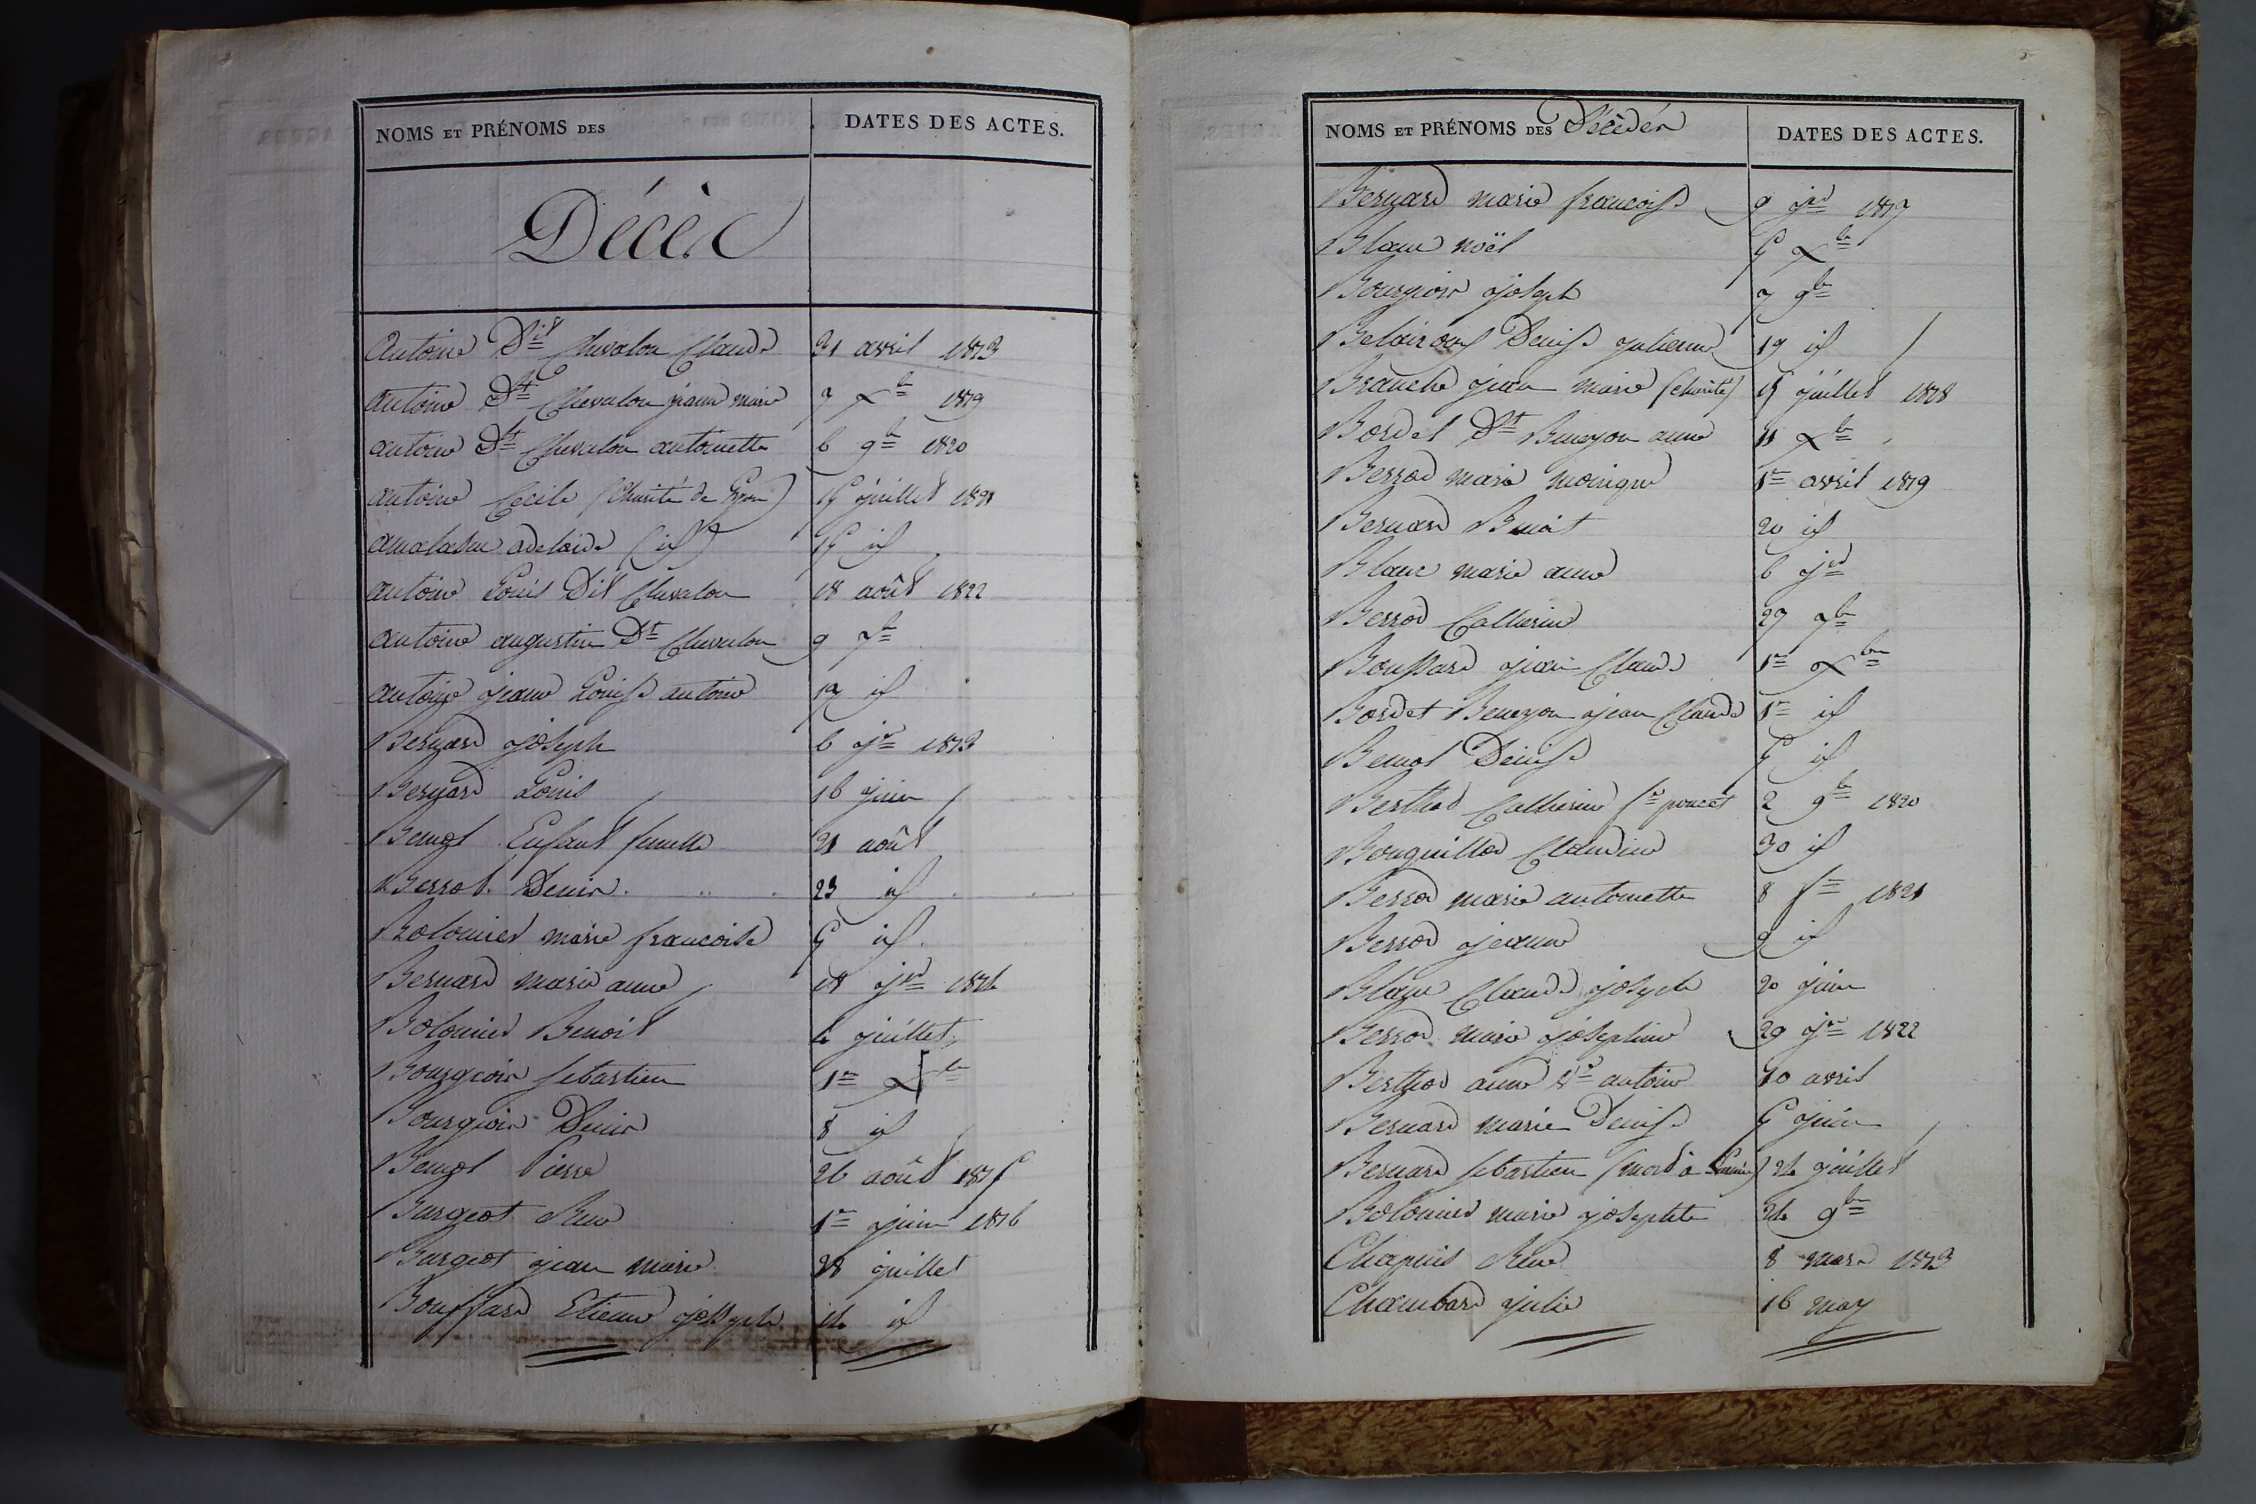 NOMS ET PRÉNOMS DES
DATES DES ACTES.
Décès
Antoine Dit Chevalon Claude 21 avril 1813
antoine Dt Chevalon jeanne marie 7 Xbre 1819
antoine Dt Chevalon antoinette 6 9bre 1820
antoine Cecile (Charité de Lyon) 15 juillet 1821
adelaïde (id) 15 id
antoine Louis Dit Chevalon 18 août 1822
antoine augustin Dt Chevalon 9 7bre
antoine jeanne Louise antoine 17 id
Bernard joseph 6 jer 1813
Bernard Louis 16 juin
Benoit Enfant femelle 21 août
Berrod Denis 23 id
Bolomier marie francoise 5 id
Bernard marie anne 18 jer 1814
Bolomier Benoit 4 juillet
Bourgeois sebastien 1er Xbre
Bourgeois Denis 8 id
Benoit Pierre 26 août 1815
Burgeot René 1er juin 1816
Burgeot jean marie 28 juillet
Bouffard Etienne joseph 14 id
NOMS ET PRÉNOMS DES Décédés
DATES DES ACTES.
Bernard marie francoise 9 jer 1817
Blanc noël 5 Xbre
Bourgeois joseph 7 9bre
Denise julienne 19 id
Branche jean marie (charité) 15 juillet 1818
Bordet Dt Beneyon anne 11 Xbre
Berrod marie monique 1er avril 1819
Bernard Benoit 20 id
Blanc marie anne 6 jer
Berrod Catherine 27 7bre
Bouffard jean Claude 1er Xbre
Bordet Beneyon jean Claude 1er id
Benoit Denise 5 id
Berthod Catherine fe poncet 2 9bre 1820
Bouquillod Claudine 30 id
Berrod marie antoinette 8 fer 1821
Berrod jeanne 9 id
Blanc Claude joseph 20 juin
Berrod marie josephine 29 jer 1822
Berthod anne ve antoine 10 avril
Bernard marie Denise 5 juin
Bernard sebastien (mort à ) 24 juillet
Bolomier marie josephte 24 9bre
Chapuis René 8 mars 1813
Chambard julie 16 may